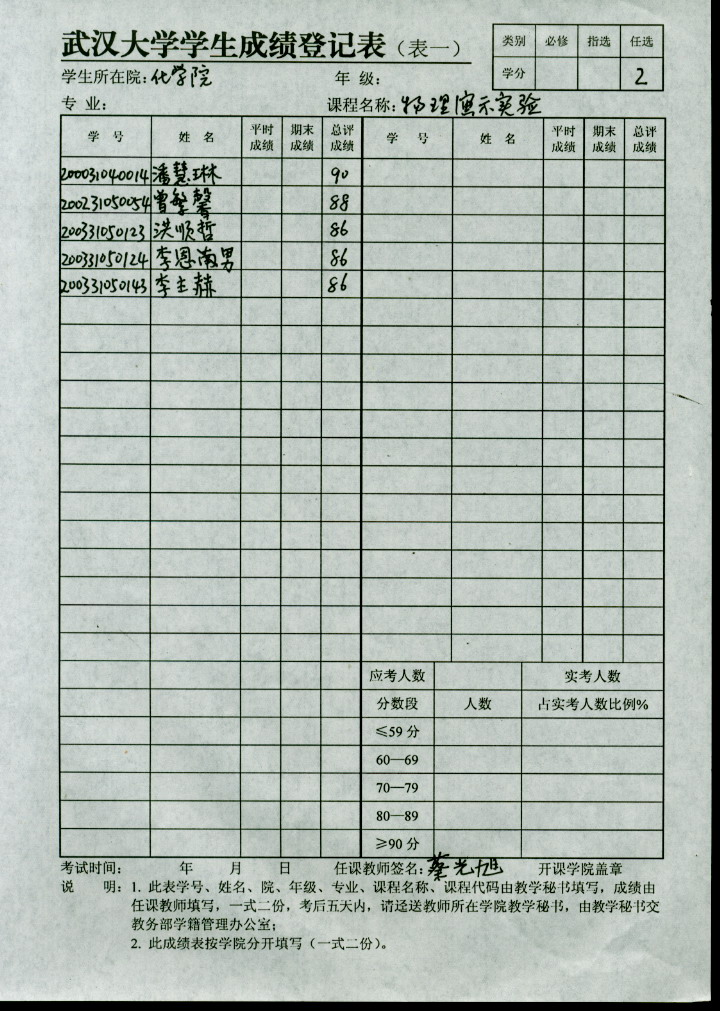 武汉大学学生成绩登记表（表一）
类别 必修 指选 任选
学分 2
学生所在院: 化学院 年 级:
专 业: 课程名称: 物理演示实验
学 号 姓 名 平时成绩 期末成绩 总评成绩 学 号 姓 名 平时成绩 期末成绩 总评成绩
200031040014 潘慧琳 90
200231050054 曾繁馨 88
200331050123 洪顺哲 86
200331050124 李恩南男 86
200331050143 李主赫 86
应考人数 实考人数
分数段 人数 占实考人数比例%
≤59 分
60—69
70—79
80—89
≥90 分
考试时间: 年 月 日 任课教师签名: 蔡光旭 开课学院盖章
说 明: 1. 此表学号、姓名、院、年级、专业、课程名称、课程代码由教学秘书填写，成绩由
任课教师填写，一式二份，考后五天内，请迳送教师所在学院教学秘书，由教学秘书交
教务部学籍管理办公室；
2. 此成绩表按学院分开填写（一式二份）。